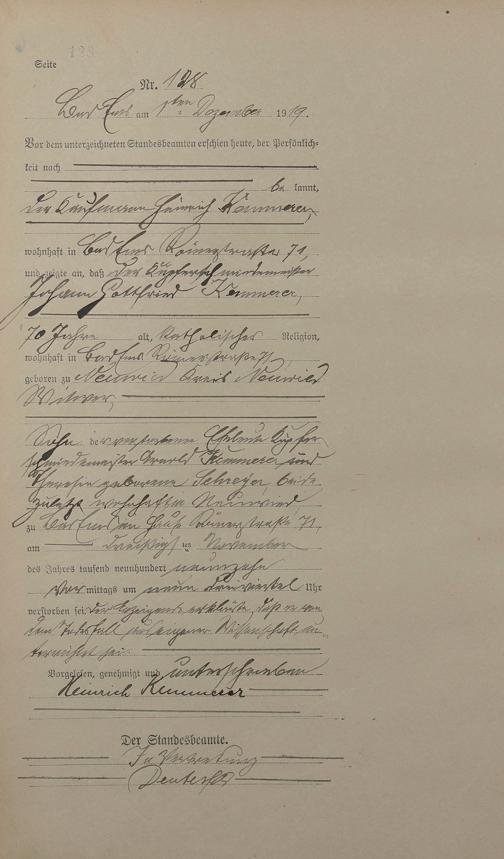 129
Seite
Nr. 128
Bad Ems am 1ten Dezember 1919.
Vor dem unterzeichneten Standesbeamten erschien heute, der Persönlich-
keit nach
be kannt,
der Kaufmann Heinrich Kemmerer,
wohnhaft in Bad Ems Römerstraße 71,
und zeigte an, daß der Kupferschmiedemeister
Johann Gottfried Kemmerer,
70 Jahre alt, katholischer Religion,
wohnhaft in Bad Ems Römerstraße 71,
geboren zu Neuwied Kreis Neuwied
Witwer,
Sohn der verstorbenen Eheleute Kupfer
schmiedemeister Arnold Kemmerer und
Theresia geborene Schreyer, beide
zuletzt wohnhaft in Neuwied,
zu Bad Ems im Hause Römerstraße 71,
am dreißigsten November
des Jahres tausend neunhundert neunzehn
Vor mittags um neun dreiviertel Uhr
verstorben sei. Der Anzeigende erklärte, daß er von
dem Todesfall aus eigener Wissenschaft un-
terrichtet sei.
Vorgelesen, genehmigt und unterschrieben
Heinrich Kemmerer
Der Standesbeamte.
In Vertretung